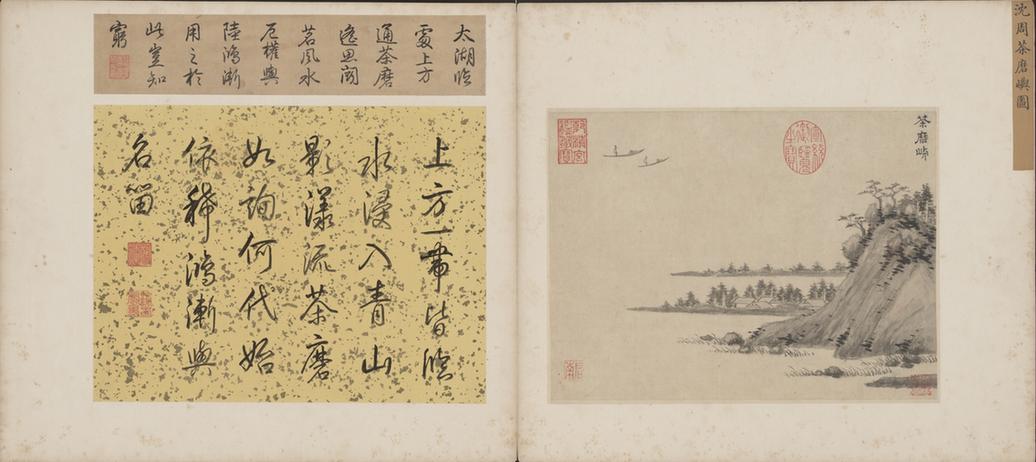 沈周茶磨嶼圖
茶磨嶼
宣統御覽之寶
太湖臨
處上方
通茶磨
遙思閣
茗風水
厄權輿
陸鴻漸
用之於
此豈知
窮
上方一帶皆臨
水浸入青山
影漾流茶磨
如詢何代始
依稀鴻漸與
名留